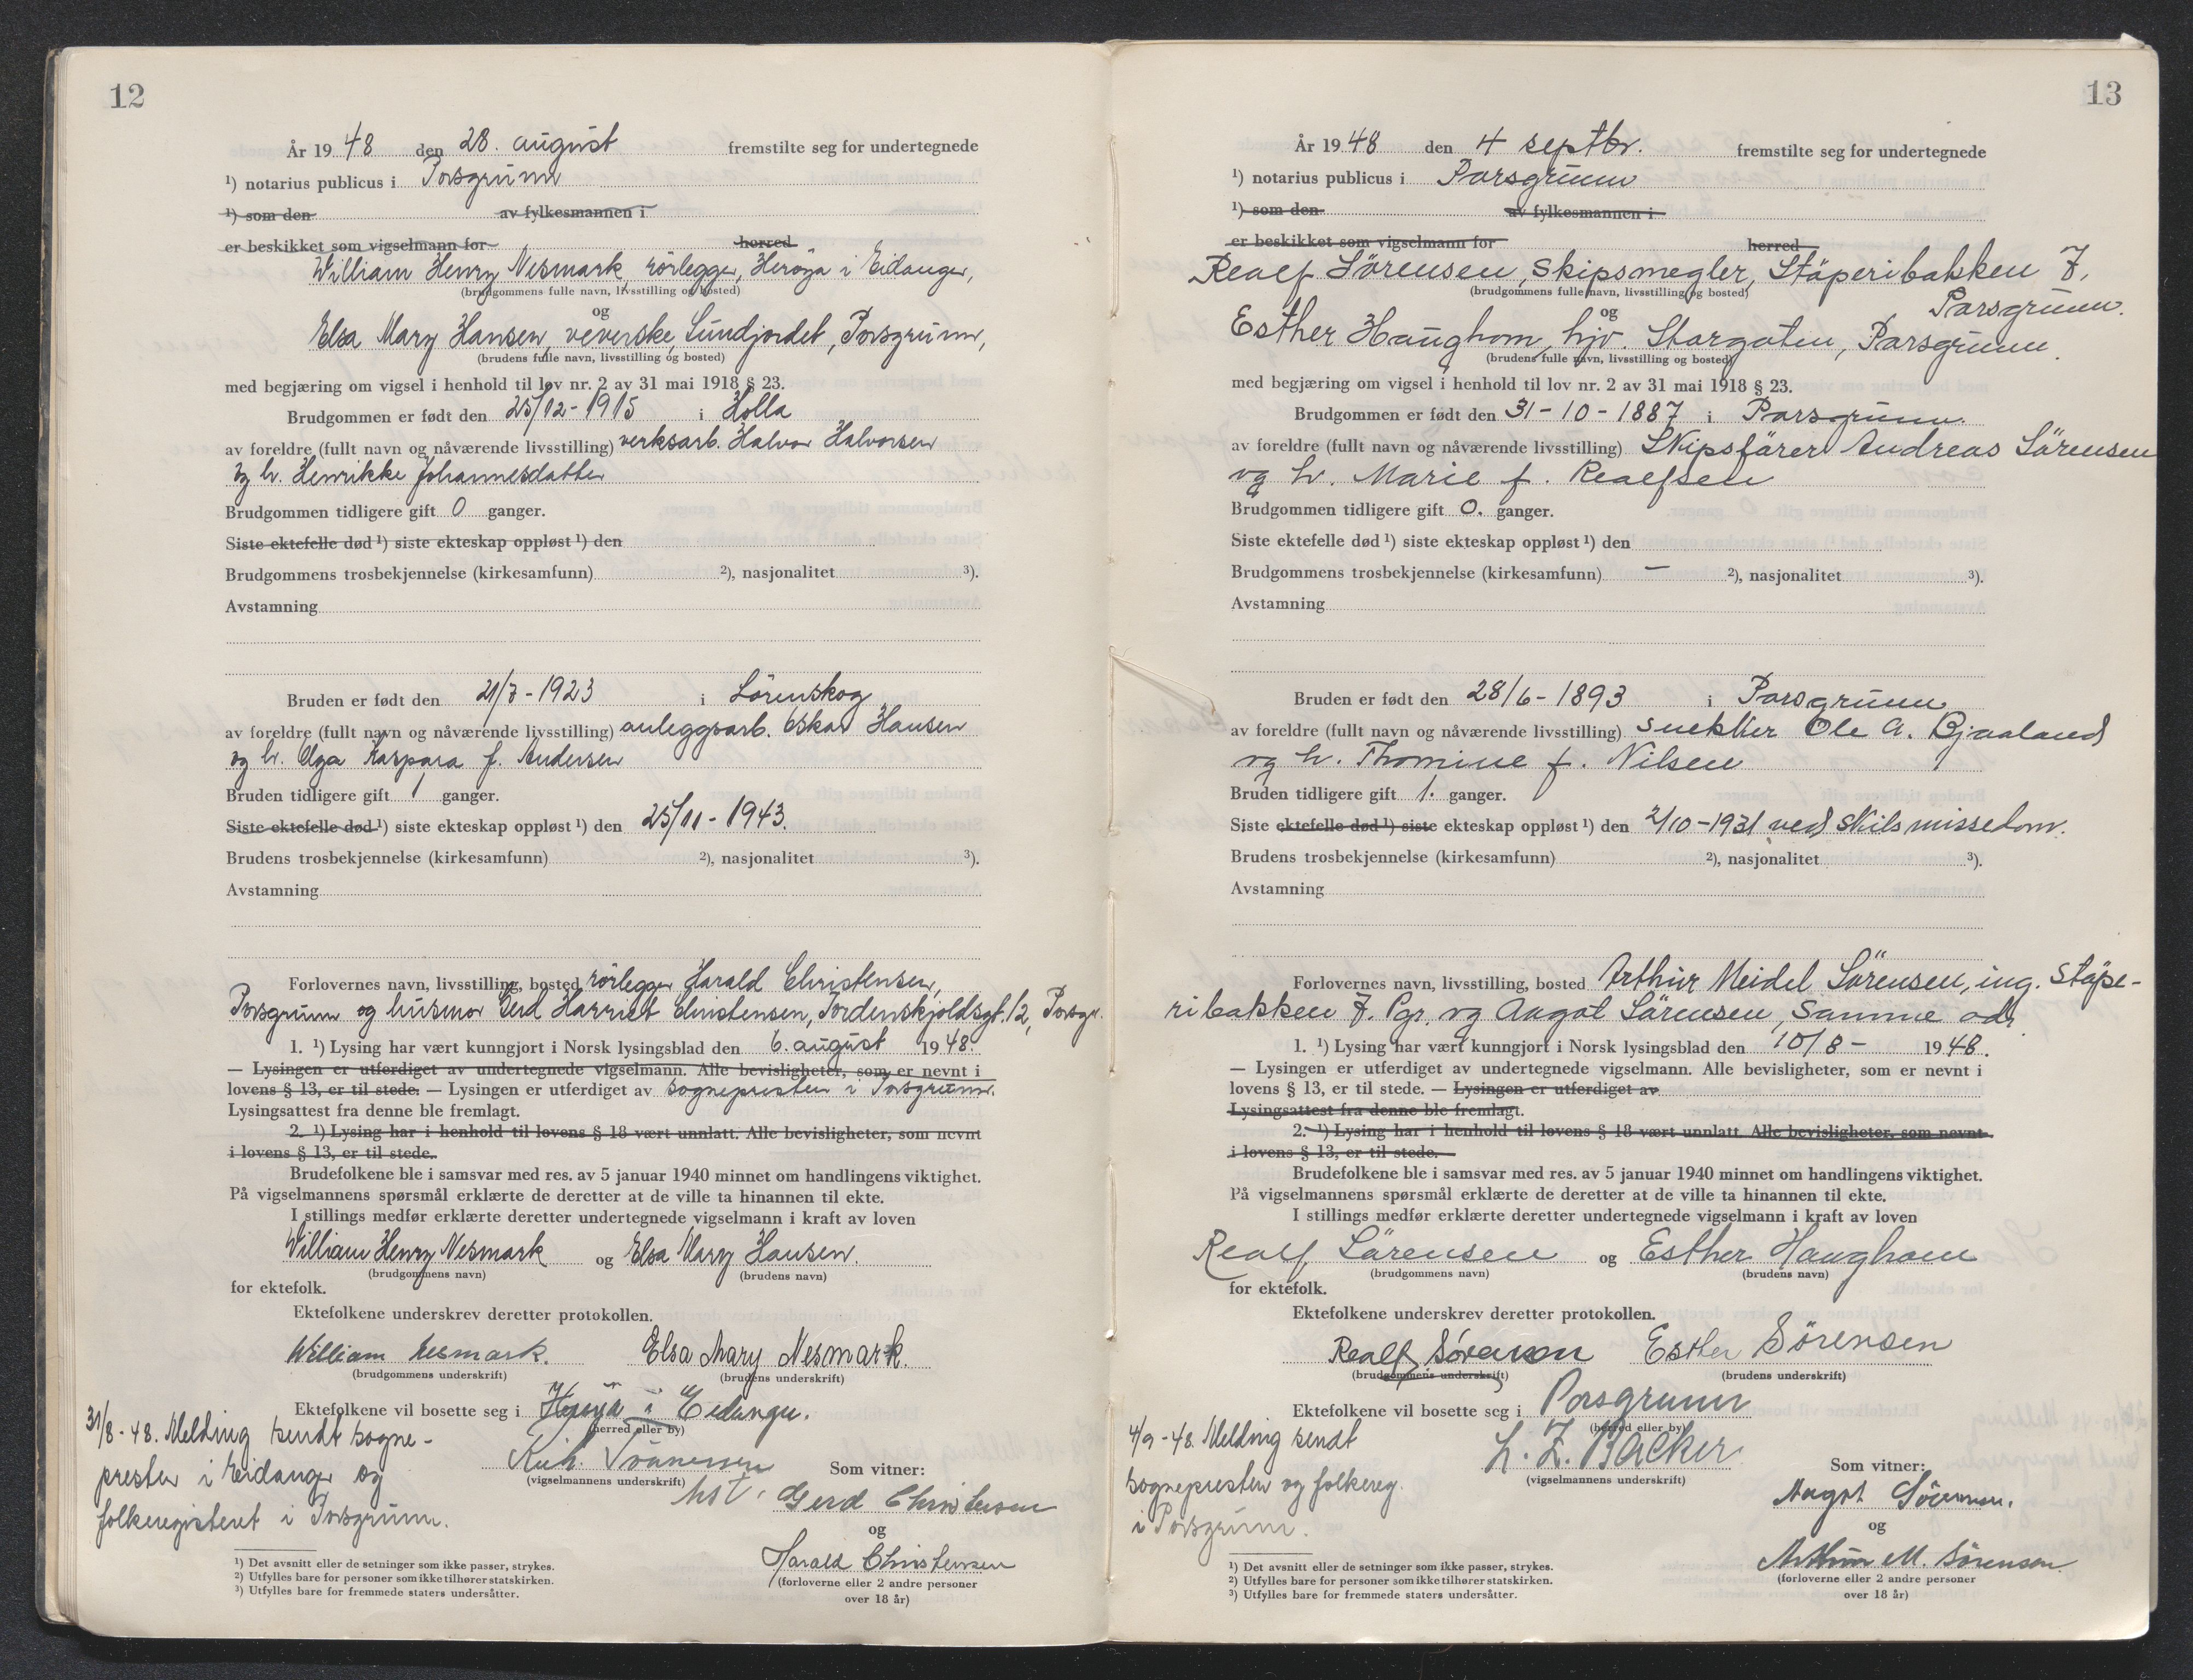 12
År 1948 den 28. august fremstilte seg for undertegnede
¹) notarius publicus i Porsgrunn
¹) som den av fylkesmannen i
er beskikket som vigselmann for herred
William Henry Nesmark, rörlegger, Heröya i Eidanger,
(brudgommens fulle navn, livsstilling og bosted)
og
Elsa Mary Hansen, veverske, Sundjordet, Porsgrunn,
(brudens fulle navn, livsstilling og bosted)
med begjæring om vigsel i henhold til lov nr. 2 av 31 mai 1918 § 23.
Brudgommen er født den 25/12-1915 i Holla
av foreldre (fullt navn og nåværende livsstilling) verksarb. Halvor Halvorsen
og h. Henrikke Johannesdatter
Brudgommen tidligere gift 0 ganger.
Siste ektefelle død ¹) siste ekteskap oppløst ¹) den
Brudgommens trosbekjennelse (kirkesamfunn) ²), nasjonalitet ³).
Avstamning
Bruden er født den 21/7-1923 i Lörenskog
av foreldre (fullt navn og nåværende livsstilling) anleggsarb. Oskar Hansen
og h. Olga Kaspara f. Andersen
Bruden tidligere gift 1 ganger.
Siste ektefelle død ¹) siste ekteskap oppløst ¹) den 25/11-1943.
Brudens trosbekjennelse (kirkesamfunn) ²), nasjonalitet ³).
Avstamning
Forlovernes navn, livsstilling, bosted rörlegger Harald Christensen,
Porsgrunn og husmor Gerd Harriet Christensen, Tordenskjoldsgt. 12, Porsgr.
1. ¹) Lysing har vært kunngjort i Norsk lysingsblad den 6. august 1948.
— Lysingen er utferdiget av undertegnede vigselmann. Alle bevisligheter, som er nevnt i
lovens § 13, er til stede. — Lysingen er utferdiget av sognepresten i Porsgrunn.
Lysingsattest fra denne ble fremlagt.
2. ¹) Lysing har i henhold til lovens § 18 vært unnlatt. Alle bevisligheter, som nevnt
i lovens § 13, er til stede.
Brudefolkene ble i samsvar med res. av 5 januar 1940 minnet om handlingens viktighet.
På vigselmannens spørsmål erklærte de deretter at de ville ta hinannen til ekte.
I stillings medfør erklærte deretter undertegnede vigselmann i kraft av loven
William Henry Nesmark og Elsa Mary Hansen.
(brudgommens navn) (brudens navn)
for ektefolk.
Ektefolkene underskrev deretter protokollen.
William Nesmark. Elsa Mary Nesmark.
(brudgommens underskrift) (brudens underskrift)
Ektefolkene vil bosette seg i Herøya i Eidanger.
(herred eller by)
31/8-48. Melding sendt sogne-
presten i Eidanger og
folkeregisteret i Porsgrunn.
(vigselmannens underskrift)
Som vitner:
Gerd Christensen
og
Harald Christensen
(forloverne eller 2 andre personer
over 18 år)
¹) Det avsnitt eller de setninger som ikke passer, strykes.
²) Utfylles bare for personer som ikke tilhører statskirken.
³) Utfylles bare for fremmede staters undersåtter.
13
År 1948 den 4 septbr. fremstilte seg for undertegnede
¹) notarius publicus i Porsgrunn
¹) som den av fylkesmannen i
er beskikket som vigselmann for herred
Realf Sörensen, Skipsmegler, Stöperibakken 7,
Porsgrunn.
(brudgommens fulle navn, livsstilling og bosted)
og
Esther Haughom, hjv. Storgaten, Porsgrunn.
(brudens fulle navn, livsstilling og bosted)
med begjæring om vigsel i henhold til lov nr. 2 av 31 mai 1918 § 23.
Brudgommen er født den 31-10-1887 i Porsgrunn.
av foreldre (fullt navn og nåværende livsstilling) Skipsförer Andreas Sörensen
og h. Marie f. Realfsen
Brudgommen tidligere gift 0. ganger.
Siste ektefelle død ¹) siste ekteskap oppløst ¹) den
Brudgommens trosbekjennelse (kirkesamfunn) — ²), nasjonalitet ³).
Avstamning
Bruden er født den 28/6-1893 i Porsgrunn
av foreldre (fullt navn og nåværende livsstilling) snekker Ole A. Bjaaland
og h. Thomine f. Nilsen
Bruden tidligere gift 1. ganger.
Siste ektefelle død ¹) siste ekteskap oppløst ¹) den 2/10-1931 ved skilsmissedom.
Brudens trosbekjennelse (kirkesamfunn) ²), nasjonalitet ³).
Avstamning
Forlovernes navn, livsstilling, bosted Arthur Meidel Sörensen, ing. Stöpe-
ribakken 7. Pgr. og Aagot Sörensen, Samme adr.
1. ¹) Lysing har vært kunngjort i Norsk lysingsblad den 10/8- 1948.
— Lysingen er utferdiget av undertegnede vigselmann. Alle bevisligheter, som er nevnt i
lovens § 13, er til stede. — Lysingen er utferdiget av
Lysingsattest fra denne ble fremlagt.
2. ¹) Lysing har i henhold til lovens § 18 vært unnlatt. Alle bevisligheter, som nevnt
i lovens § 13, er til stede.
Brudefolkene ble i samsvar med res. av 5 januar 1940 minnet om handlingens viktighet.
På vigselmannens spørsmål erklærte de deretter at de ville ta hinannen til ekte.
I stillings medfør erklærte deretter undertegnede vigselmann i kraft av loven
Realf Sörensen og Esther Haughom
(brudgommens navn) (brudens navn)
for ektefolk.
Ektefolkene underskrev deretter protokollen.
Realf Sörensen Esther Sørensen
(brudgommens underskrift) (brudens underskrift)
Ektefolkene vil bosette seg i Porsgrunn
(herred eller by)
4/9-48. Melding sendt
sognepresten og folkereg.
i Porsgrunn.
L. Z. Backer
(vigselmannens underskrift)
Som vitner:
Aagot Sörensen.
og
Arthur M. Sörensen.
(forloverne eller 2 andre personer
over 18 år)
¹) Det avsnitt eller de setninger som ikke passer, strykes.
²) Utfylles bare for personer som ikke tilhører statskirken.
³) Utfylles bare for fremmede staters undersåtter.